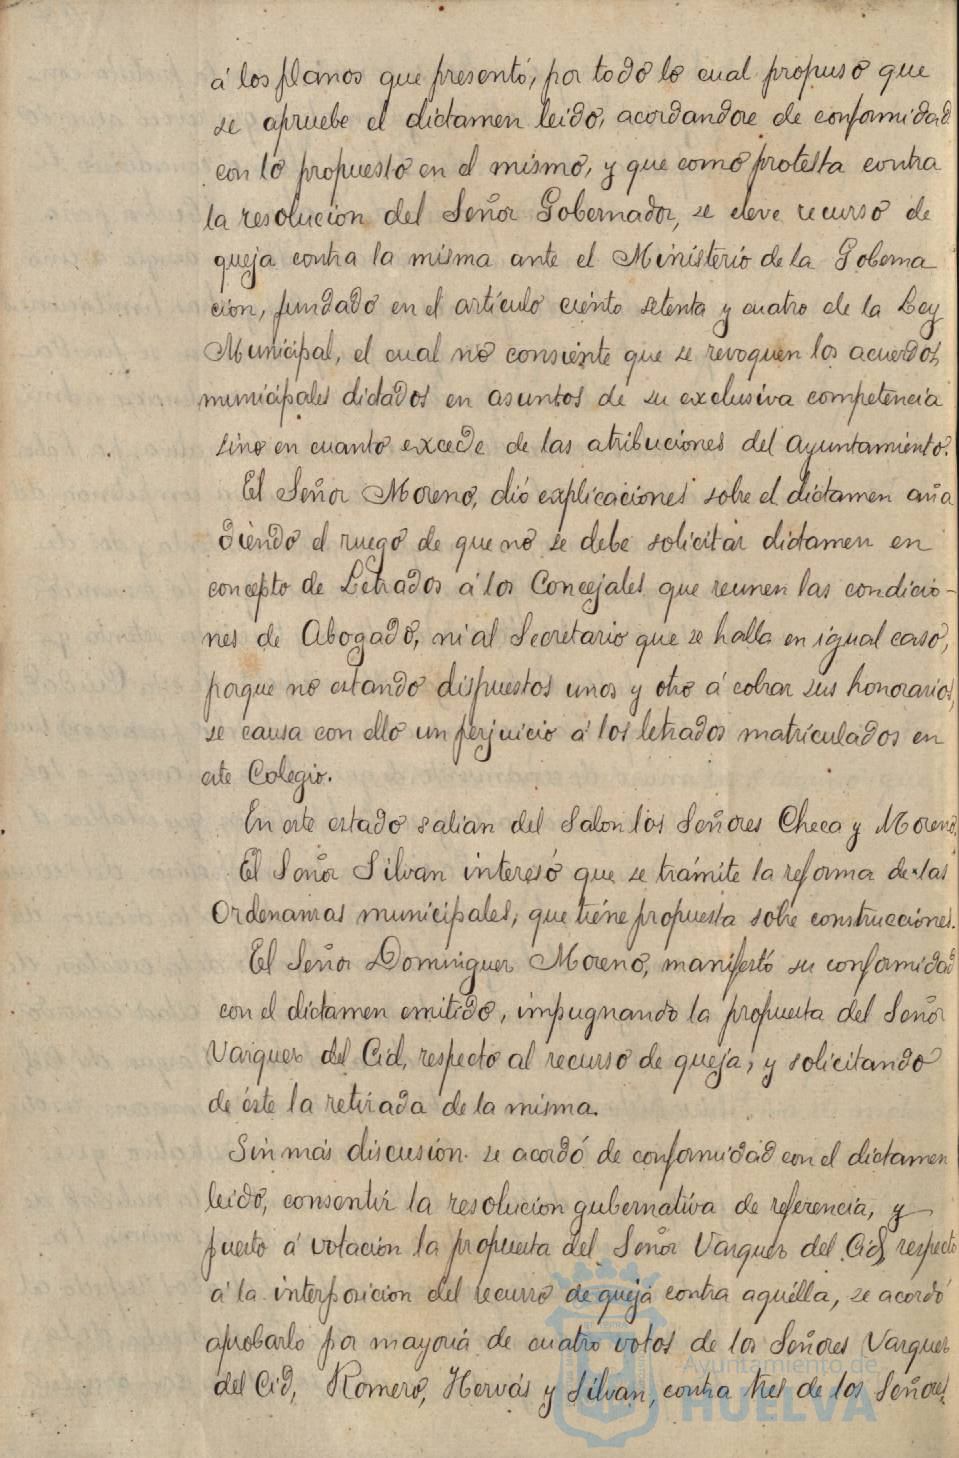 á los planos que presentó, por todo lo cual propuso que
se apruebe el dictamen leido, acordandose de conformidad
con lo propuesto en el mismo, y que como protesta contra
la resolucion del Señor Gobernador, se eleve recurso de
queja contra la misma ante el Ministerio de la Goberna
cion, fundado en el artículo ciento setenta y cuatro de la Ley
Municipal, el cual no consiente que se revoquen los acuerdos
municipales dictados en asuntos de su exclusiva competencia
sino en cuanto excede de las atribuciones del Ayuntamiento.
El Señor Moreno, dió explicaciones sobre el dictamen aña
diendo el ruego de que no se debe solicitar dictamen en
concepto de Letrados á los Concejales que reunen las condicio-
nes de Abogado, ni al Secretario que se halla en igual caso,
porque no estando dispuestos unos y otro á cobrar sus honorarios,
se causa con ello un perjuicio á los letrados matriculados en
este Colegio.
En este estado salian del Salon los Señores Checa y Moreno.
El Señor Silvan interesó que se trámite la reforma de las
Ordenanzas municipales, que tiene propuesta sobre construcciones.
El Señor Dominguez Moreno, manifestó su conformidad
con el dictamen emitido, impugnando la propuesta del Señor
Vazquez del Cid, respecto al recurso de queja, y solicitando
de éste la retirada de la misma.
Sin más discusión se acordó de conformidad con el dictamen
leido, consentir la resolucion gubernativa de referencia, y
puesto á votación la propuesta del Señor Vazquez del Cid, respecto
á la interposicion del recurso de queja contra aquélla, se acordó
aprobarlo por mayoría de cuatro votos de los Señores Vazquez
del Cid, Romero, Hervás y Silvan, contra tres de los Señores,
Ayuntamiento de
HUELVA